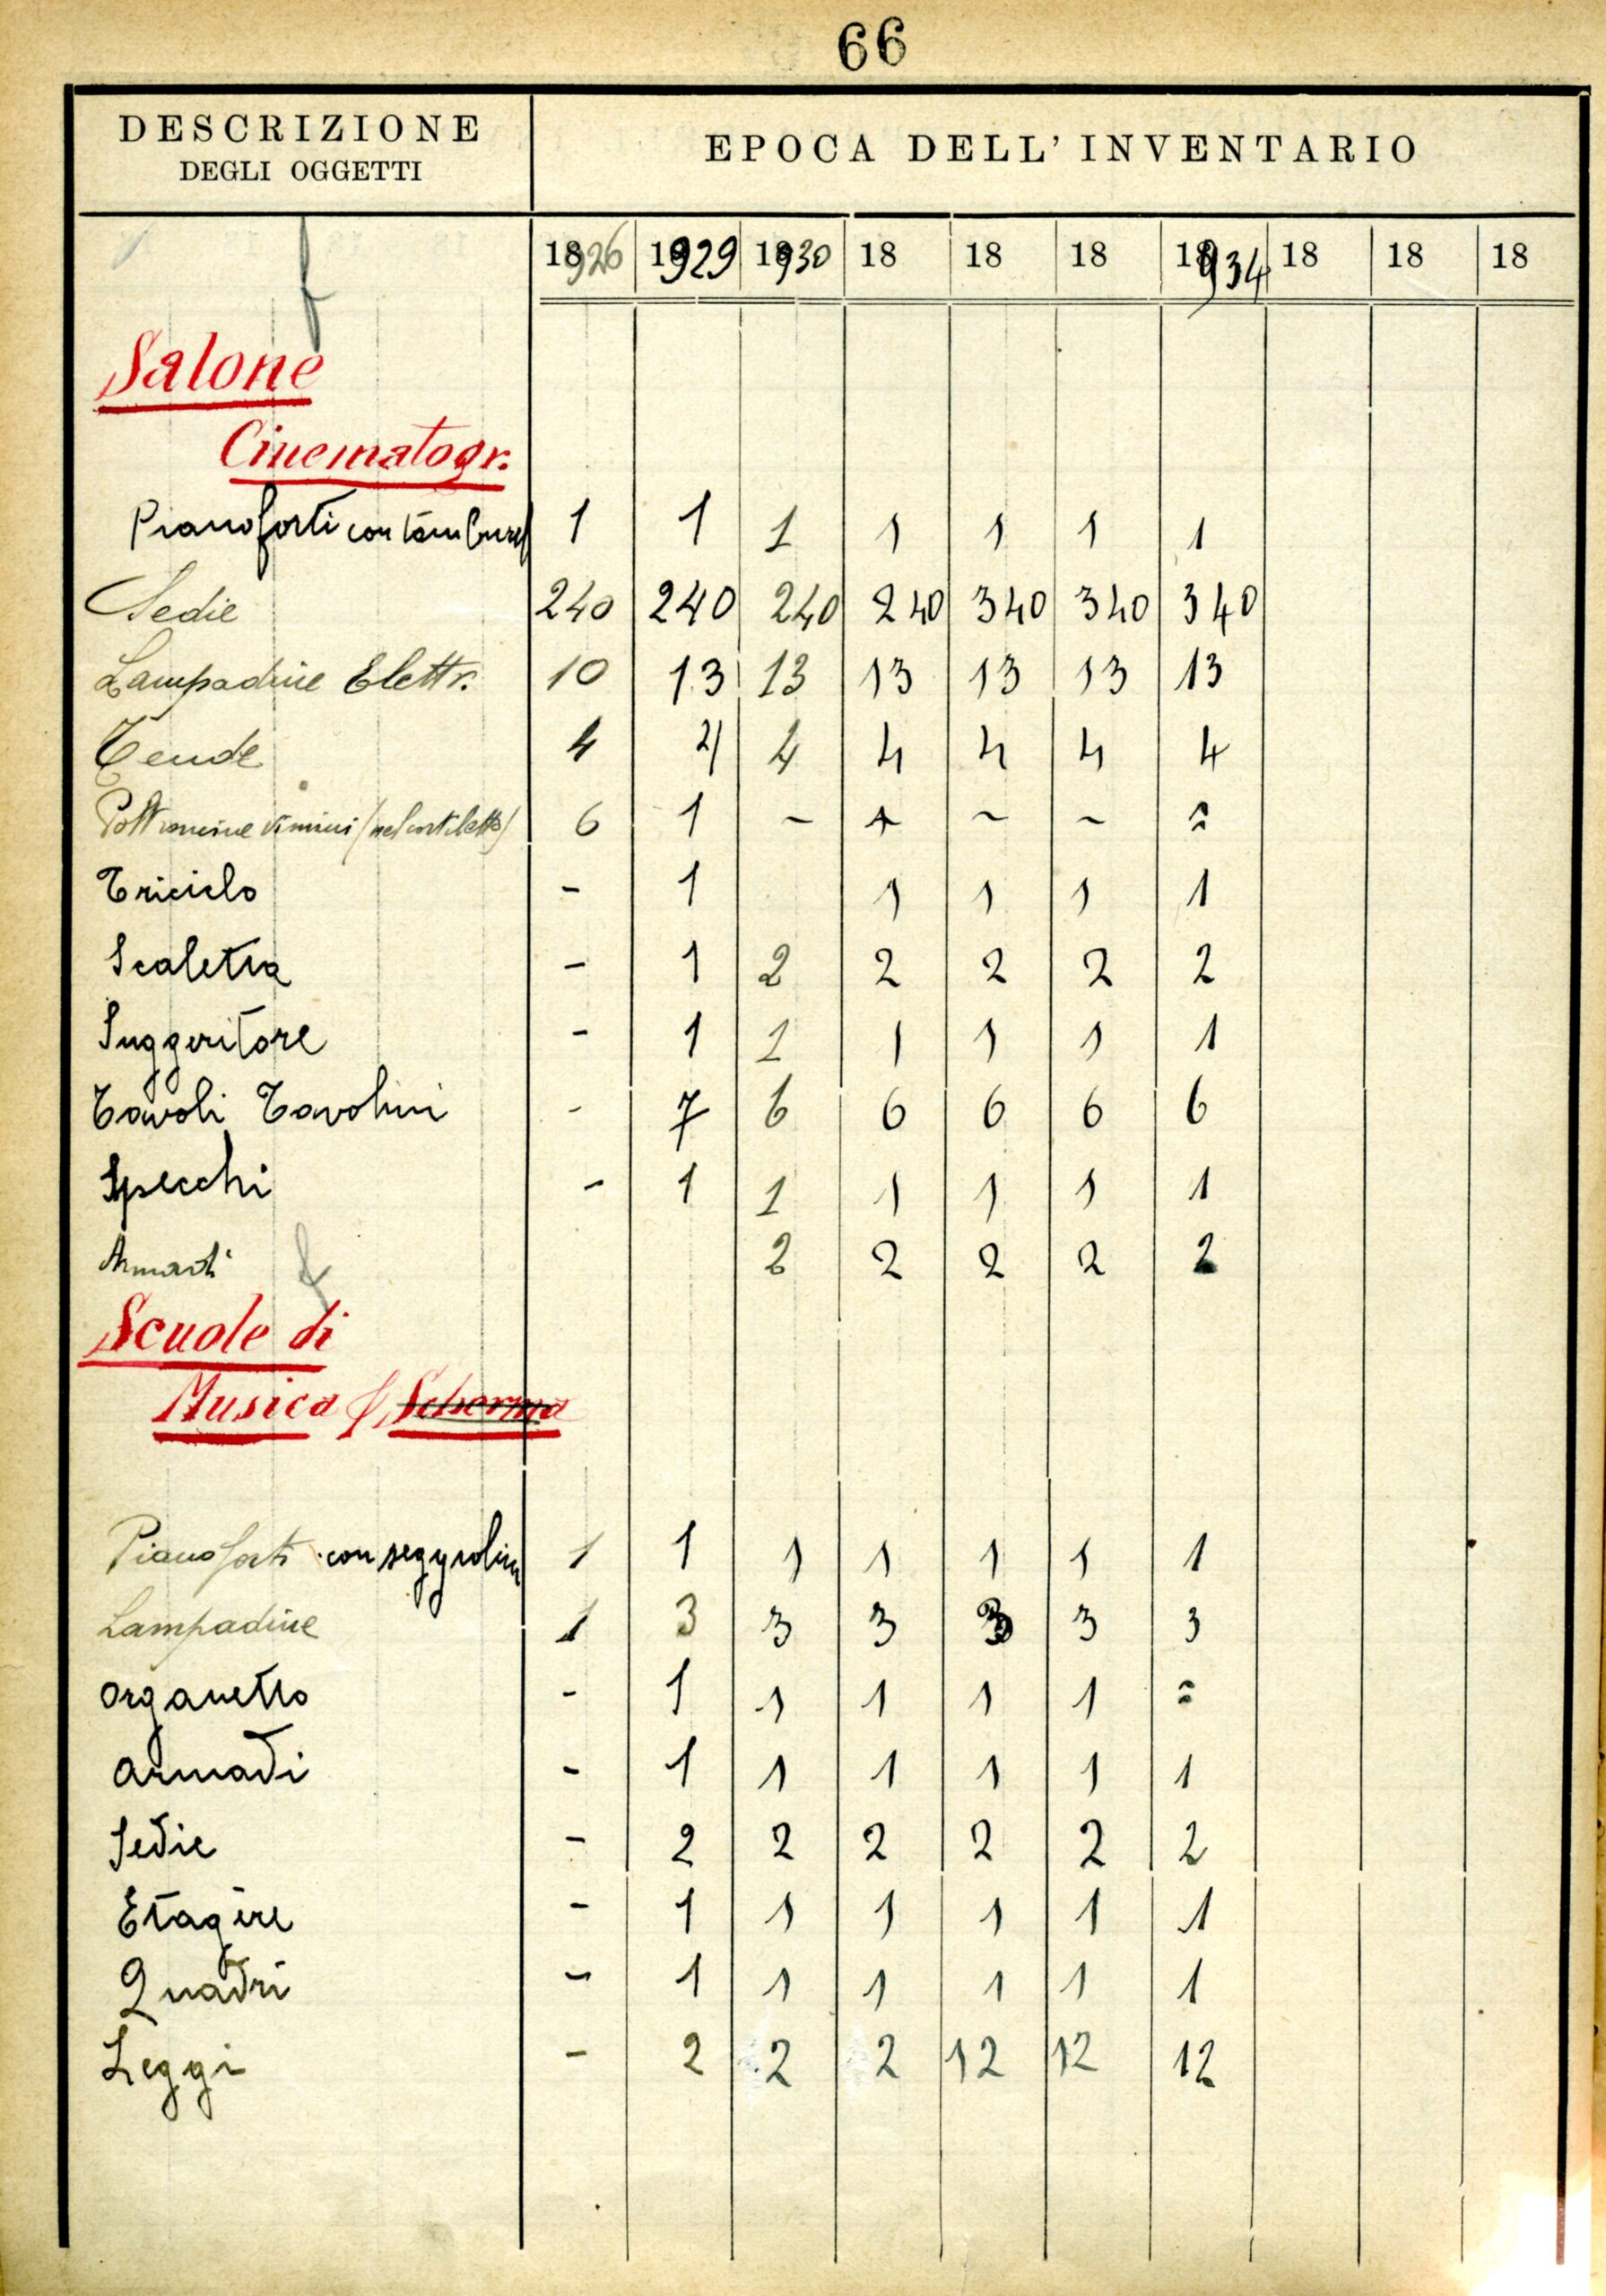 66
DESCRIZIONE
DEGLI OGGETTI
EPOCA DELL'INVENTARIO
1926 1929 1930 18 18 18 1934 18 18 18
Salone
Cinematogr.
Pianoforti con tamburel 1 1 1 1 1 1 1
Sedie 240 240 240 240 340 340 340
Lampadine Elettr. 10 13 13 13 13 13 13
Tende 4 4 4 4 4 4 4
Poltroncine vimini (nel cortiletto) 6 1 ~ ~ ~ ~ =
Triciclo - 1 1 1 1 1
Scaletta - 1 2 2 2 2 2
Suggeritore - 1 1 1 1 1 1
Tavoli Tavolini - 7 6 6 6 6 6
Specchi - 1 1 1 1 1 1
Armadi 2 2 2 2 2
Scuole di
Musica & Scherma
Pianoforti con seggiolin 1 1 1 1 1 1 1
Lampadine 1 3 3 3 3 3 3
Organetto - 1 1 1 1 1 =
Armadi - 1 1 1 1 1 1
Sedie - 2 2 2 2 2 2
Etagère - 1 1 1 1 1 1
Quadri - 1 1 1 1 1 1
Leggi - 2 2 2 12 12 12